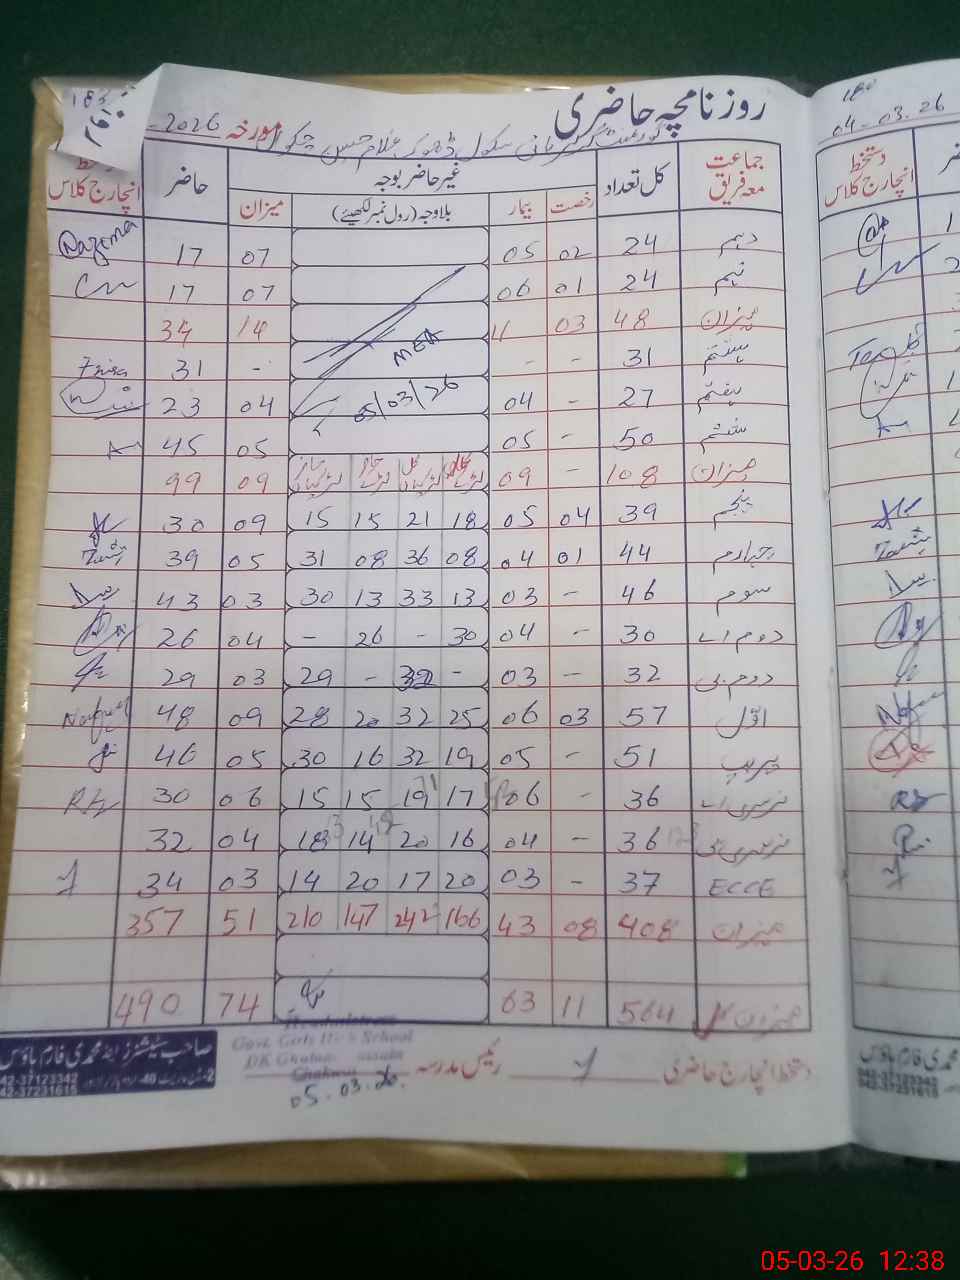 روزنامچہ حاضری
گورنمنٹ گرلز ہائی سکول ڈھوک غلام حسین چکوال مورخہ -2026
جماعت معہ فریق کل تعداد غیر حاضر بوجہ حاضر دستخط انچارج کلاس
رخصت بیمار بلاوجہ (رول نمبر لکھیئے) میزان
دہم 24 02 05 07 17 Nazema
نہم 24 01 06 07 17
میزان 48 03 11 14 34
ہشتم 31 - - - 31
MEA
ہفتم 27 - 04 04 23
05/03/26
ششم 50 - 05 05 45
میزان 108 - 09 09 99
پنجم 39 04 05 18 21 15 15 09 30
چہارم 44 01 04 08 36 08 31 05 39
سوم 46 - 03 13 33 13 30 03 43
دوم اے 30 - 04 30 - 26 - 04 26
دوم بی 32 - 03 - 32 - 29 03 29
اوّل 57 03 06 25 32 20 28 09 48
پریپ 51 - 05 19 32 16 30 05 46
نرسری اے 36 - 06 17 19 15 15 06 30
نرسری بی 36 - 04 16 20 14 18 04 32
ECCE 37 - 03 20 17 20 14 03 34
میزان 408 08 43 166 242 147 210 51 357
میزان کل 564 11 63 74 490
دستخط انچارج حاضری رئیس مدرسہ
Headmistress
Govt. Girls High School
DK Ghulam Hussain
Chakwal
05.03.26.
صاحب سٹیشنرز اینڈ محمدی فارم ہاؤس
042-37123342
042-37231616
180
04-03.26
دستخط انچارج کلاس
محمدی فارم ہاؤس
05-03-26 12:38